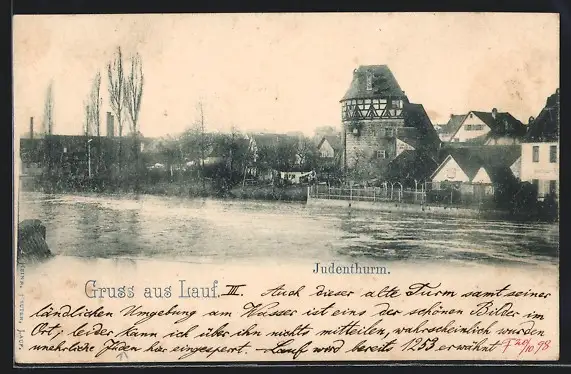 Judenthurm.
Gruss aus Lauf. III. Auch dieser alte Turm samt seiner
ländlichen Umgebung am Wasser ist eins der schönen Bilder im
Ort; leider kann ich über ihn nichts mitteilen, wahrscheinlich wurden
unehrliche Juden hier eingesperrt. Lauf wird bereits 1253 erwähnt 20/10 98